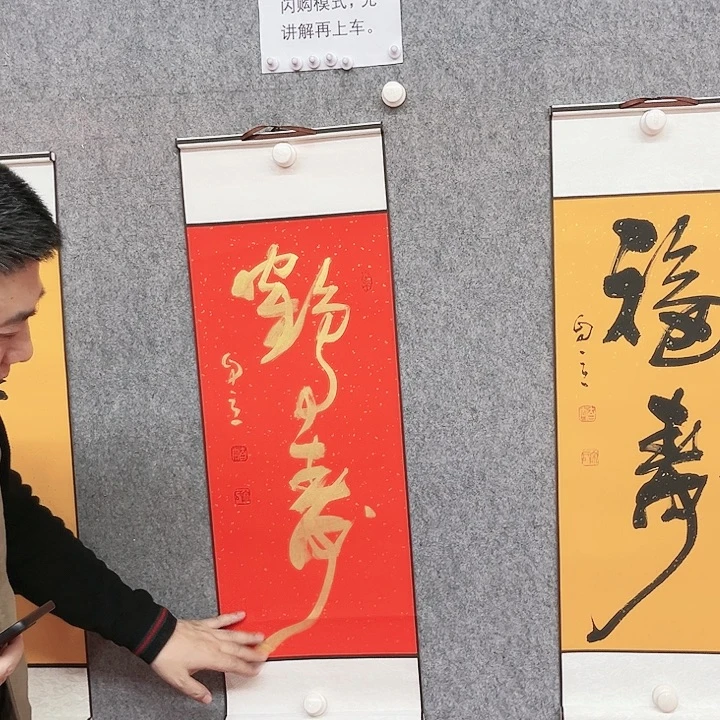 闪购模式，先
讲解再上车。
鹤
寿
福
寿